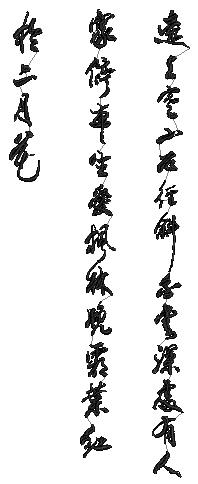 遠上寒山石徑斜白雲深處有人
家停車坐愛楓林晚霜葉紅
於二月花